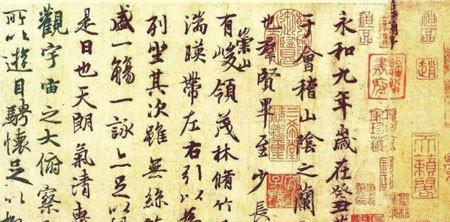 永和九年歲在癸丑
于會稽山陰之蘭
也羣賢畢至少長
崇山
有峻領茂林脩竹
湍暎帶左右引以為
列坐其次雖無絲
盛一觴一詠亦足以
是日也天朗氣清惠
觀宇宙之大俯察
所以遊目騁懷足以
趙
天籟閣